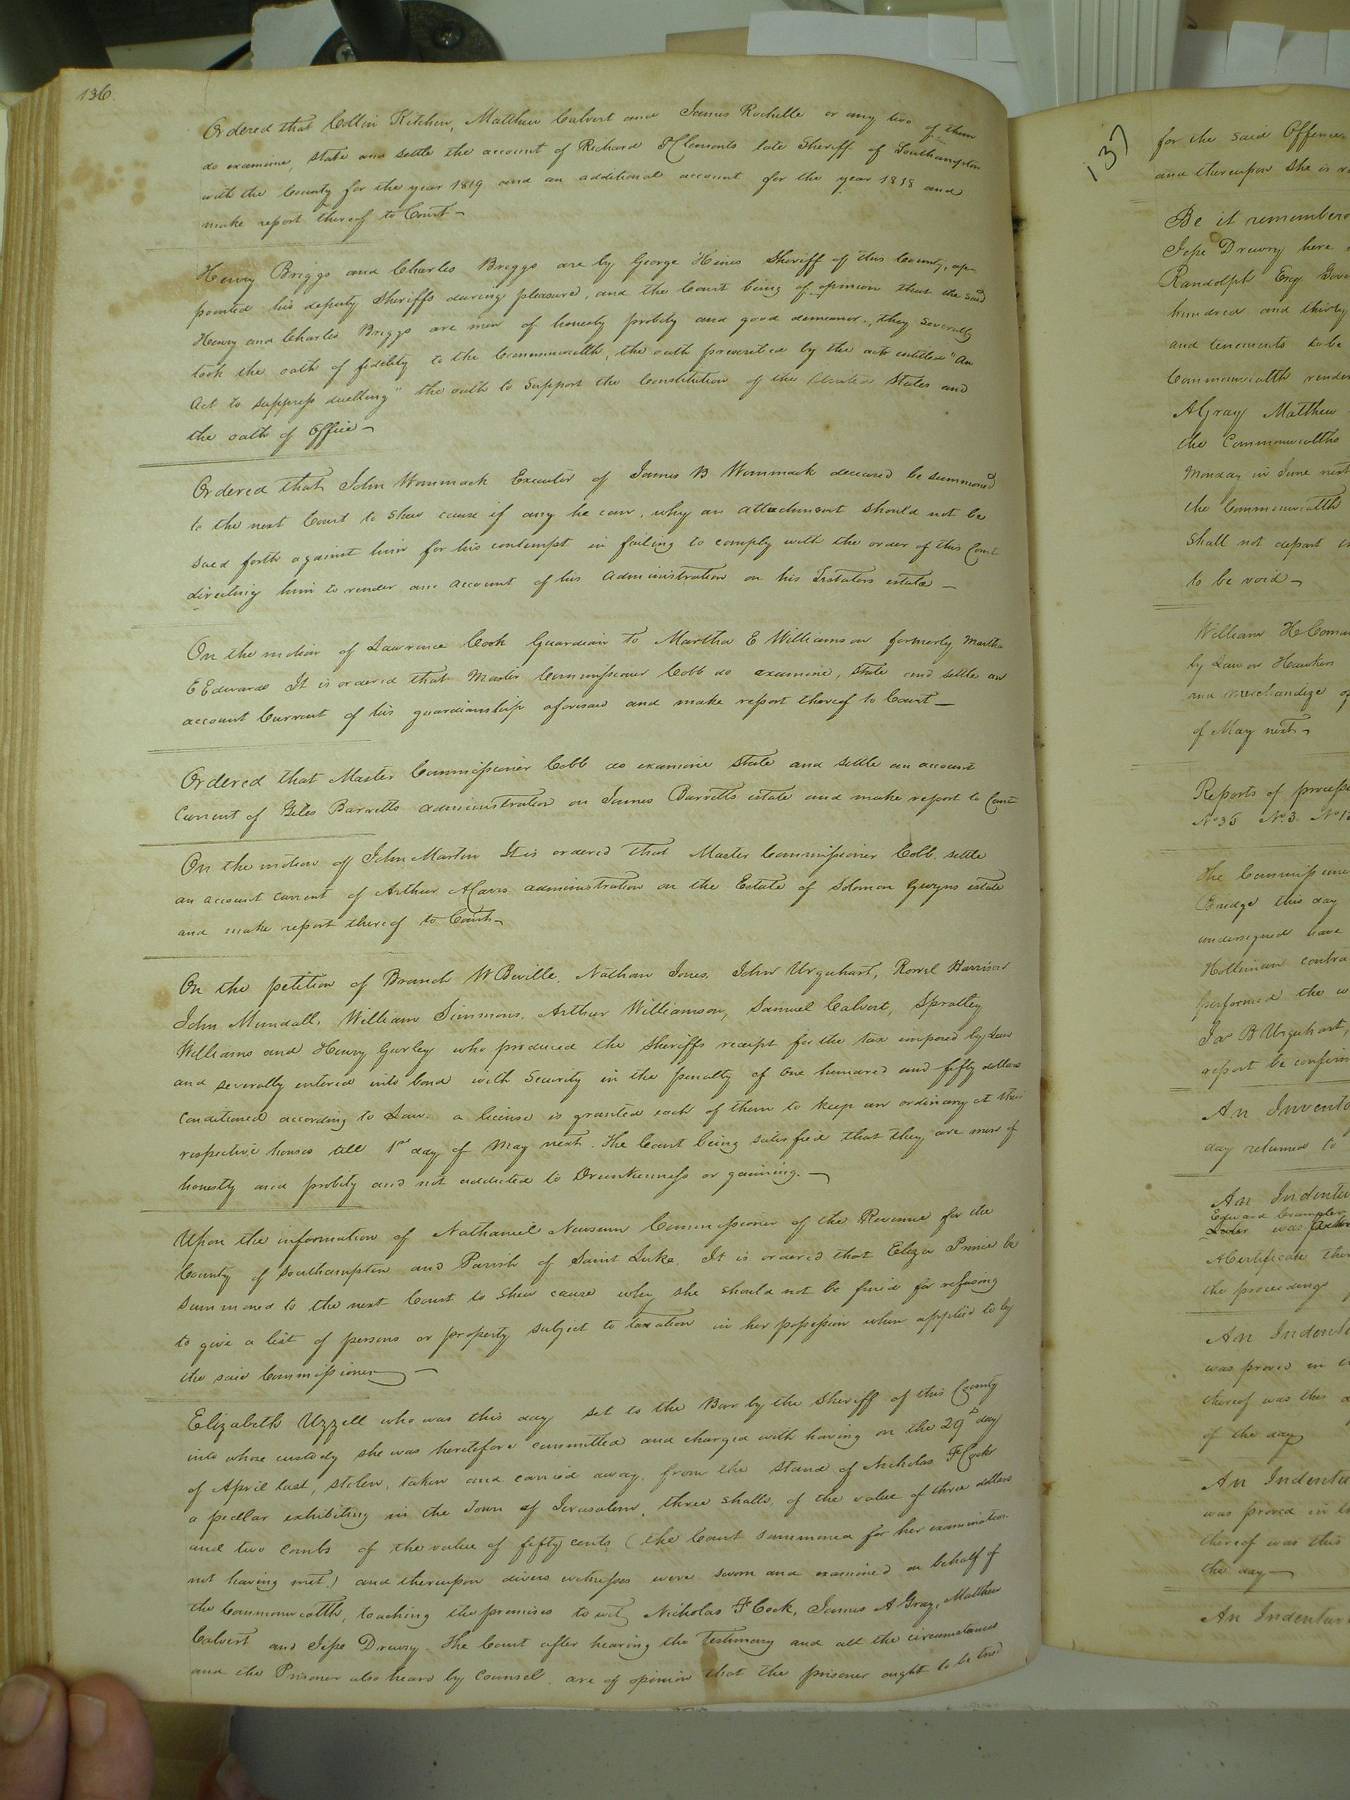 136.
Ordered that Collin Kitchen, Matthew Calvert and James Rochelle or any two of them
do examine, state and settle the account of Richard H Clements late Sheriff of Southampton
with the County for the year 1819 and an additional account for the year 1818 and
make report thereof to Court
Henry Briggs and Charles Briggs are by George Hines Sheriff of this County, ap-
pointed his deputy Sheriffs during pleasure, and the Court being of opinion that the said
Henry and Charles Briggs are men of honesty probity and good demeanor, they severally
took the oath of fidelity to the Commonwealth, the oath prescribed by the act entitled "An
Act to suppress duelling" the oath to Support the Constitution of the United States and
the oath of Office
Ordered that John Wommack Executor of James B Wommack deceased be summoned
to the next Court to shew cause if any he can, why an attachment should not be
sued forth against him for his contempt in failing to comply with the order of this Court
directing him to render an account of his administration on his Testators estate
On the motion of Lawrence Cook Guardian to Martha E Williamson formerly Martha
E Edwards It is ordered that Master Commissioner Cobb do examine, state and settle an
account Current of his guardianship aforesaid and make report thereof to Court
Ordered that Master Commissioner Cobb do examine State and settle an account
Current of Giles Barretts administration on James Barretts estate and make report to Court
On the motion of John Martin It is ordered that Master Commissioner Cobb, settle
an account current of Arthur administration on the Estate of Solomon estate
and make report thereof to Court
On the petition of Branch W Beville, Nathan Jones, John Urquhart, Harrison
John Mundall, William Simmons, Arthur Williamson, Samuel Calvert, Spratley
Williams and Henry Gurley who produced the Sheriffs receipt for the tax imposed by Law
and severally entered into bond with Security in the penalty of One hundred and fifty dollars
conditioned according to Law. a license is granted each of them to keep an ordinary at their
respective houses till 1st day of May next. The Court being satisfied that they are men of
honesty and probity and not addicted to Drunkenness or gaming.
Upon the information of Nathaniel Newsum Commissioner of the Revenue for the
County of Southampton and Parish of Saint Luke, It is ordered that Eliza Prince be
Summoned to the next Court to shew cause why she should not be fined for refusing
to give a list of persons or property subject to taxation in her possession when applied to by
the said Commissioner
Elizabeth Uzzell who was this day set to the Bar by the Sheriff of this County
into whose custody she was heretofore committed and charged with having on the 29th day
of April last, stolen, taken and carried away, from the stand of Nicholas F Cock
a pedlar exhibiting in the Town of Jerusalem, three shalls, of the value of three dollars
and two combs of the value of fifty cents (the Court summoned for her examination
not having met,) and thereupon divers witnesses were sworn and examined on behalf of
the Commonwealth, touching the premises to wit, Nicholas F Cock, James A Gray, Matthew
Calvert and Jesse Drewry. The Court after hearing the Testimony and all the circumstances
and the Prisoner also heard by Counsel, are of opinion that the prisoner ought to be tried
137
for the said Offence
and thereupon she is
Be it remembered
Jesse Drewry here
Randolph Esq Gov
hundred and thirty
and tenements to be
Commonwealth render
A Gray Matthew
the Commonwealths
Monday in June next
the Commonwealth
shall not depart
to be void
William H
by Law or Hawkers
and merchandize of
of May next
Reports of
No 35 No 3. No
The Commissioner
Bridge this day
undersigned have
performed the
Jas B Urquhart,
report be confirm
An Invento
day returned to
An Indentu
Edward
was
A Certificate
the proceedings
An Indent
was proved in
thereof was this
of the day
An Indentu
was proved in
thereof was this
the day
An Indentur